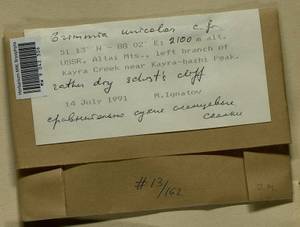 Grimmia unicolor c. fr.
51 13' N - 88 02' E; 2100 m alt.
USSR, Altai Mts., left branch of
Kayra Creek near Kayra-bazhi Peak.
rather dry schist's cliff
14 July 1991 M.Ignatov
сравнительно сухие сланцевые
скалки
#13/162